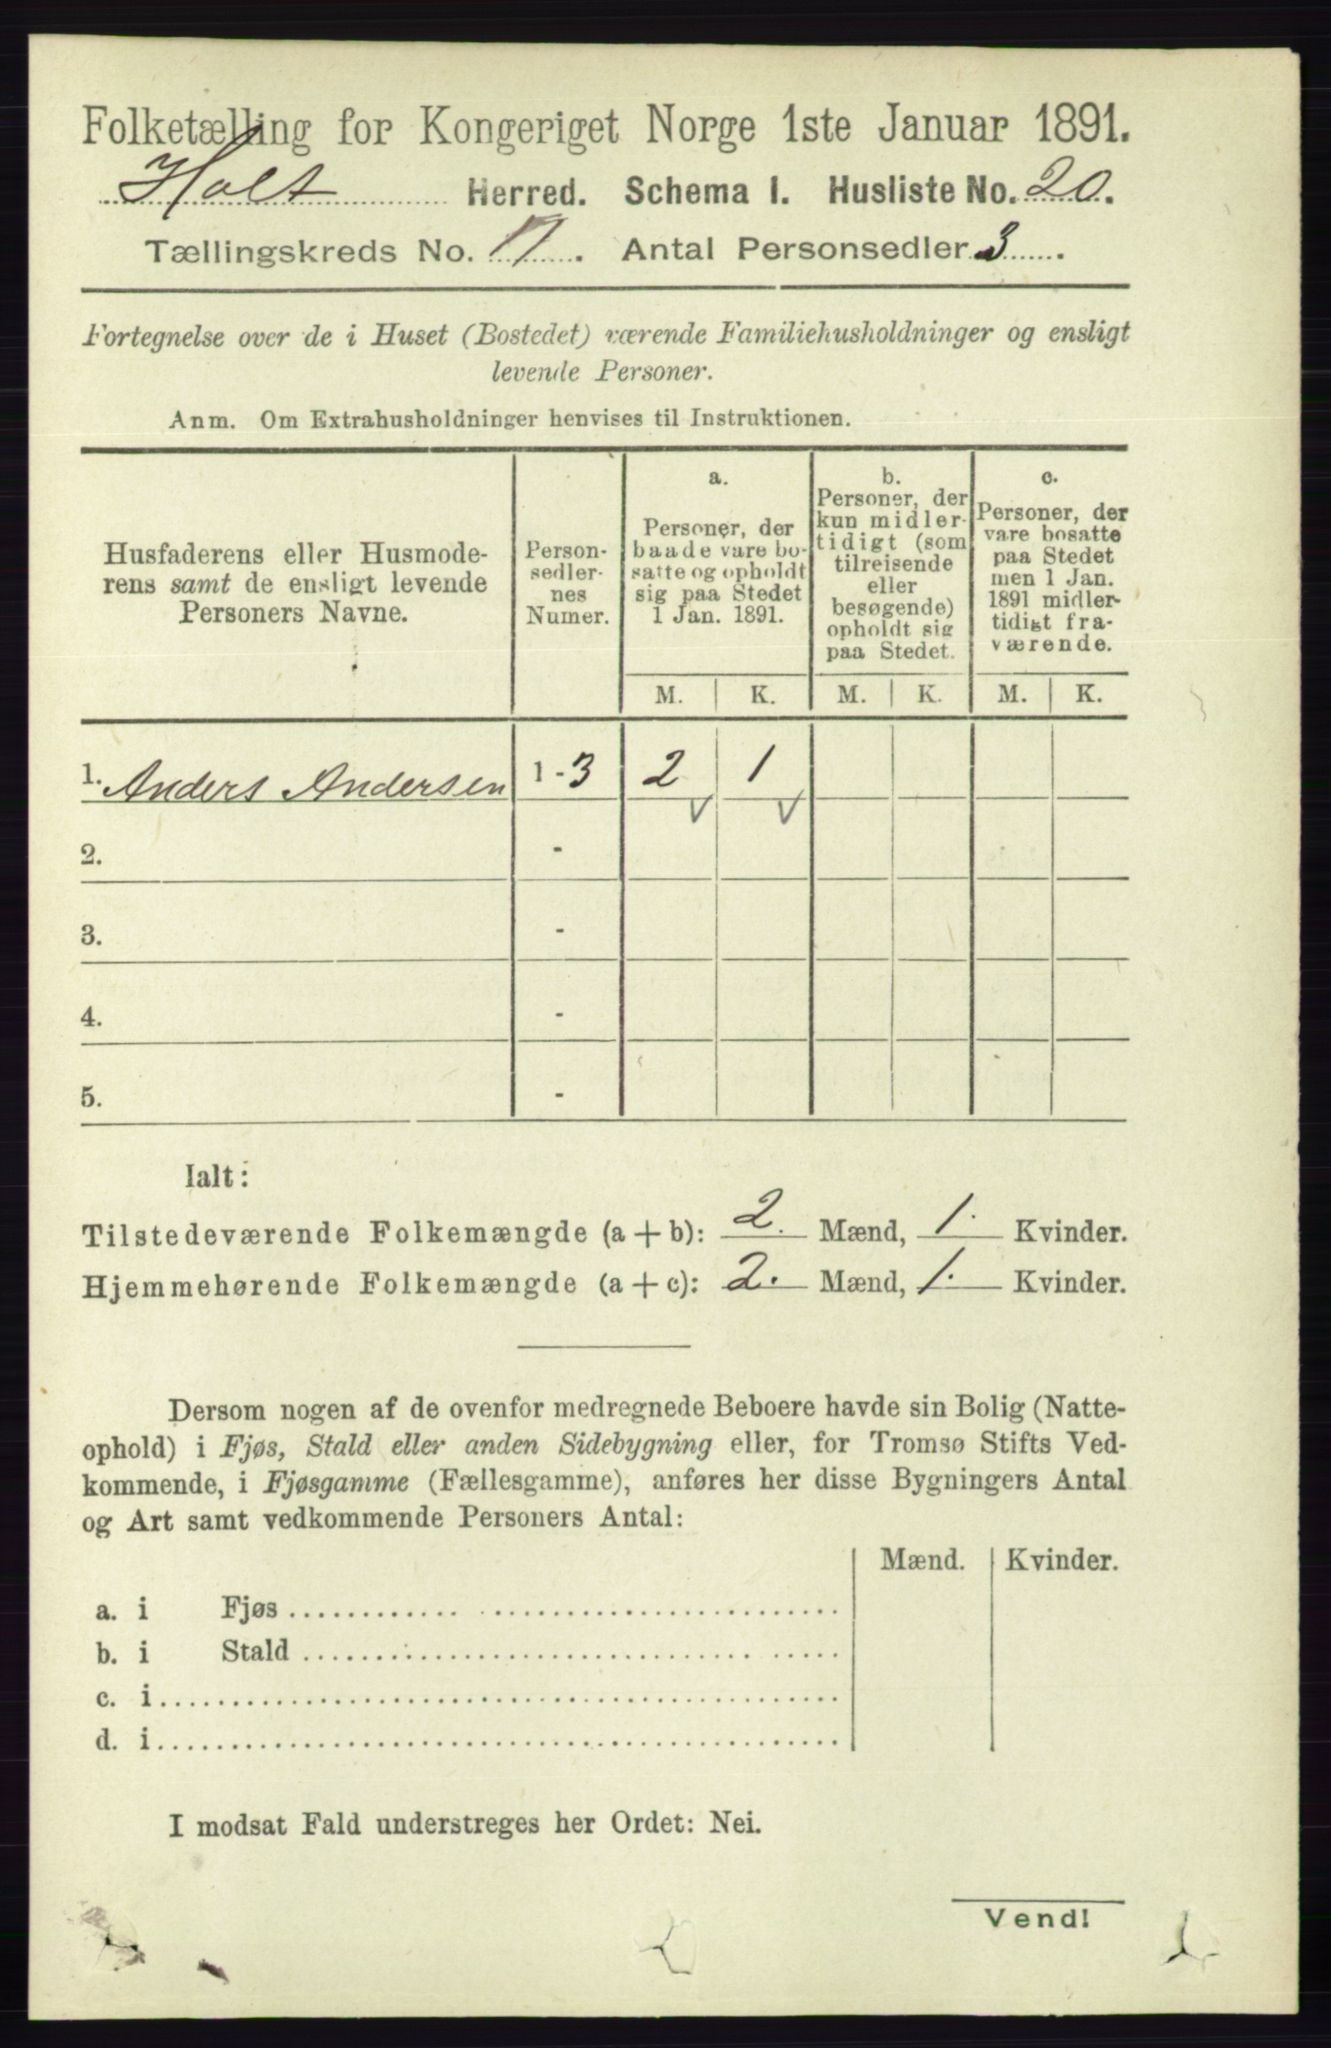 Folketælling for Kongeriget Norge 1ste Januar 1891.
Holt Herred. Schema I. Husliste No. 20.
Tællingskreds No. 17. Antal Personsedler 3.
Fortegnelse over de i Huset (Bostedet) værende Familiehusholdninger og ensligt
levende Personer.
Anm. Om Extrahusholdninger henvises til Instruktionen.
Husfaderens eller Husmode-
rens samt de ensligt levende
Personers Navne.
Person-
sedler-
nes
Numer.
a.
Personer, der
baade vare bo-
satte og opholdt
sig paa Stedet
1 Jan. 1891.
b.
Personer, der
kun midler-
tidigt (som
tilreisende
eller
besøgende)
opholdt sig
paa Stedet.
c.
Personer, der
vare bosatte
paa Stedet
men 1 Jan.
1891 midler-
tidigt fra-
værende.
M. K. M. K. M. K.
1. Anders Andersen 1 - 3 2 1
2. -
3. -
4. -
5. -
Ialt:
Tilstedeværende Folkemængde (a + b): 2. Mænd, 1. Kvinder.
Hjemmehørende Folkemængde (a + c): 2. Mænd, 1. Kvinder.
Dersom nogen af de ovenfor medregnede Beboere havde sin Bolig (Natte-
ophold) i Fjøs, Stald eller anden Sidebygning eller, for Tromsø Stifts Ved-
kommende, i Fjøsgamme (Fællesgamme), anføres her disse Bygningers Antal
og Art samt vedkommende Personers Antal:
Mænd. Kvinder.
a. i Fjøs
b. i Stald
c. i
d. i
I modsat Fald understreges her Ordet: Nei.
Vend!